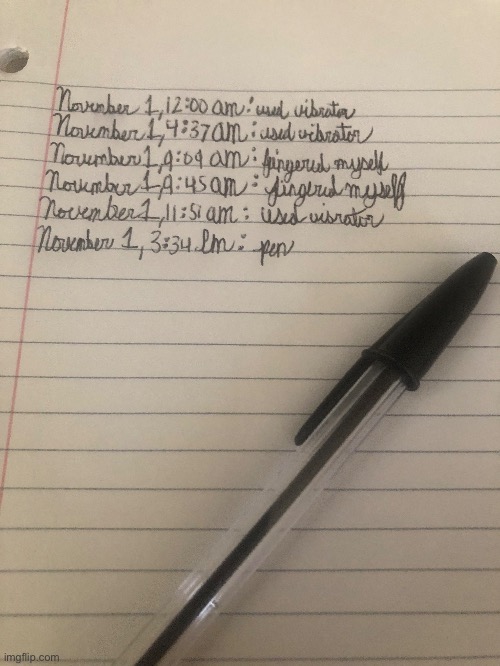 November 1, 12:00 am: used vibrator
November 1, 4:37 am: used vibrator
November 1, 9:09 am: fingered myself
November 1, 9:45 am: fingered myself
November 1, 11:51 am: used vibrator
November 1, 3:34 Pm: pen
imgflip.com